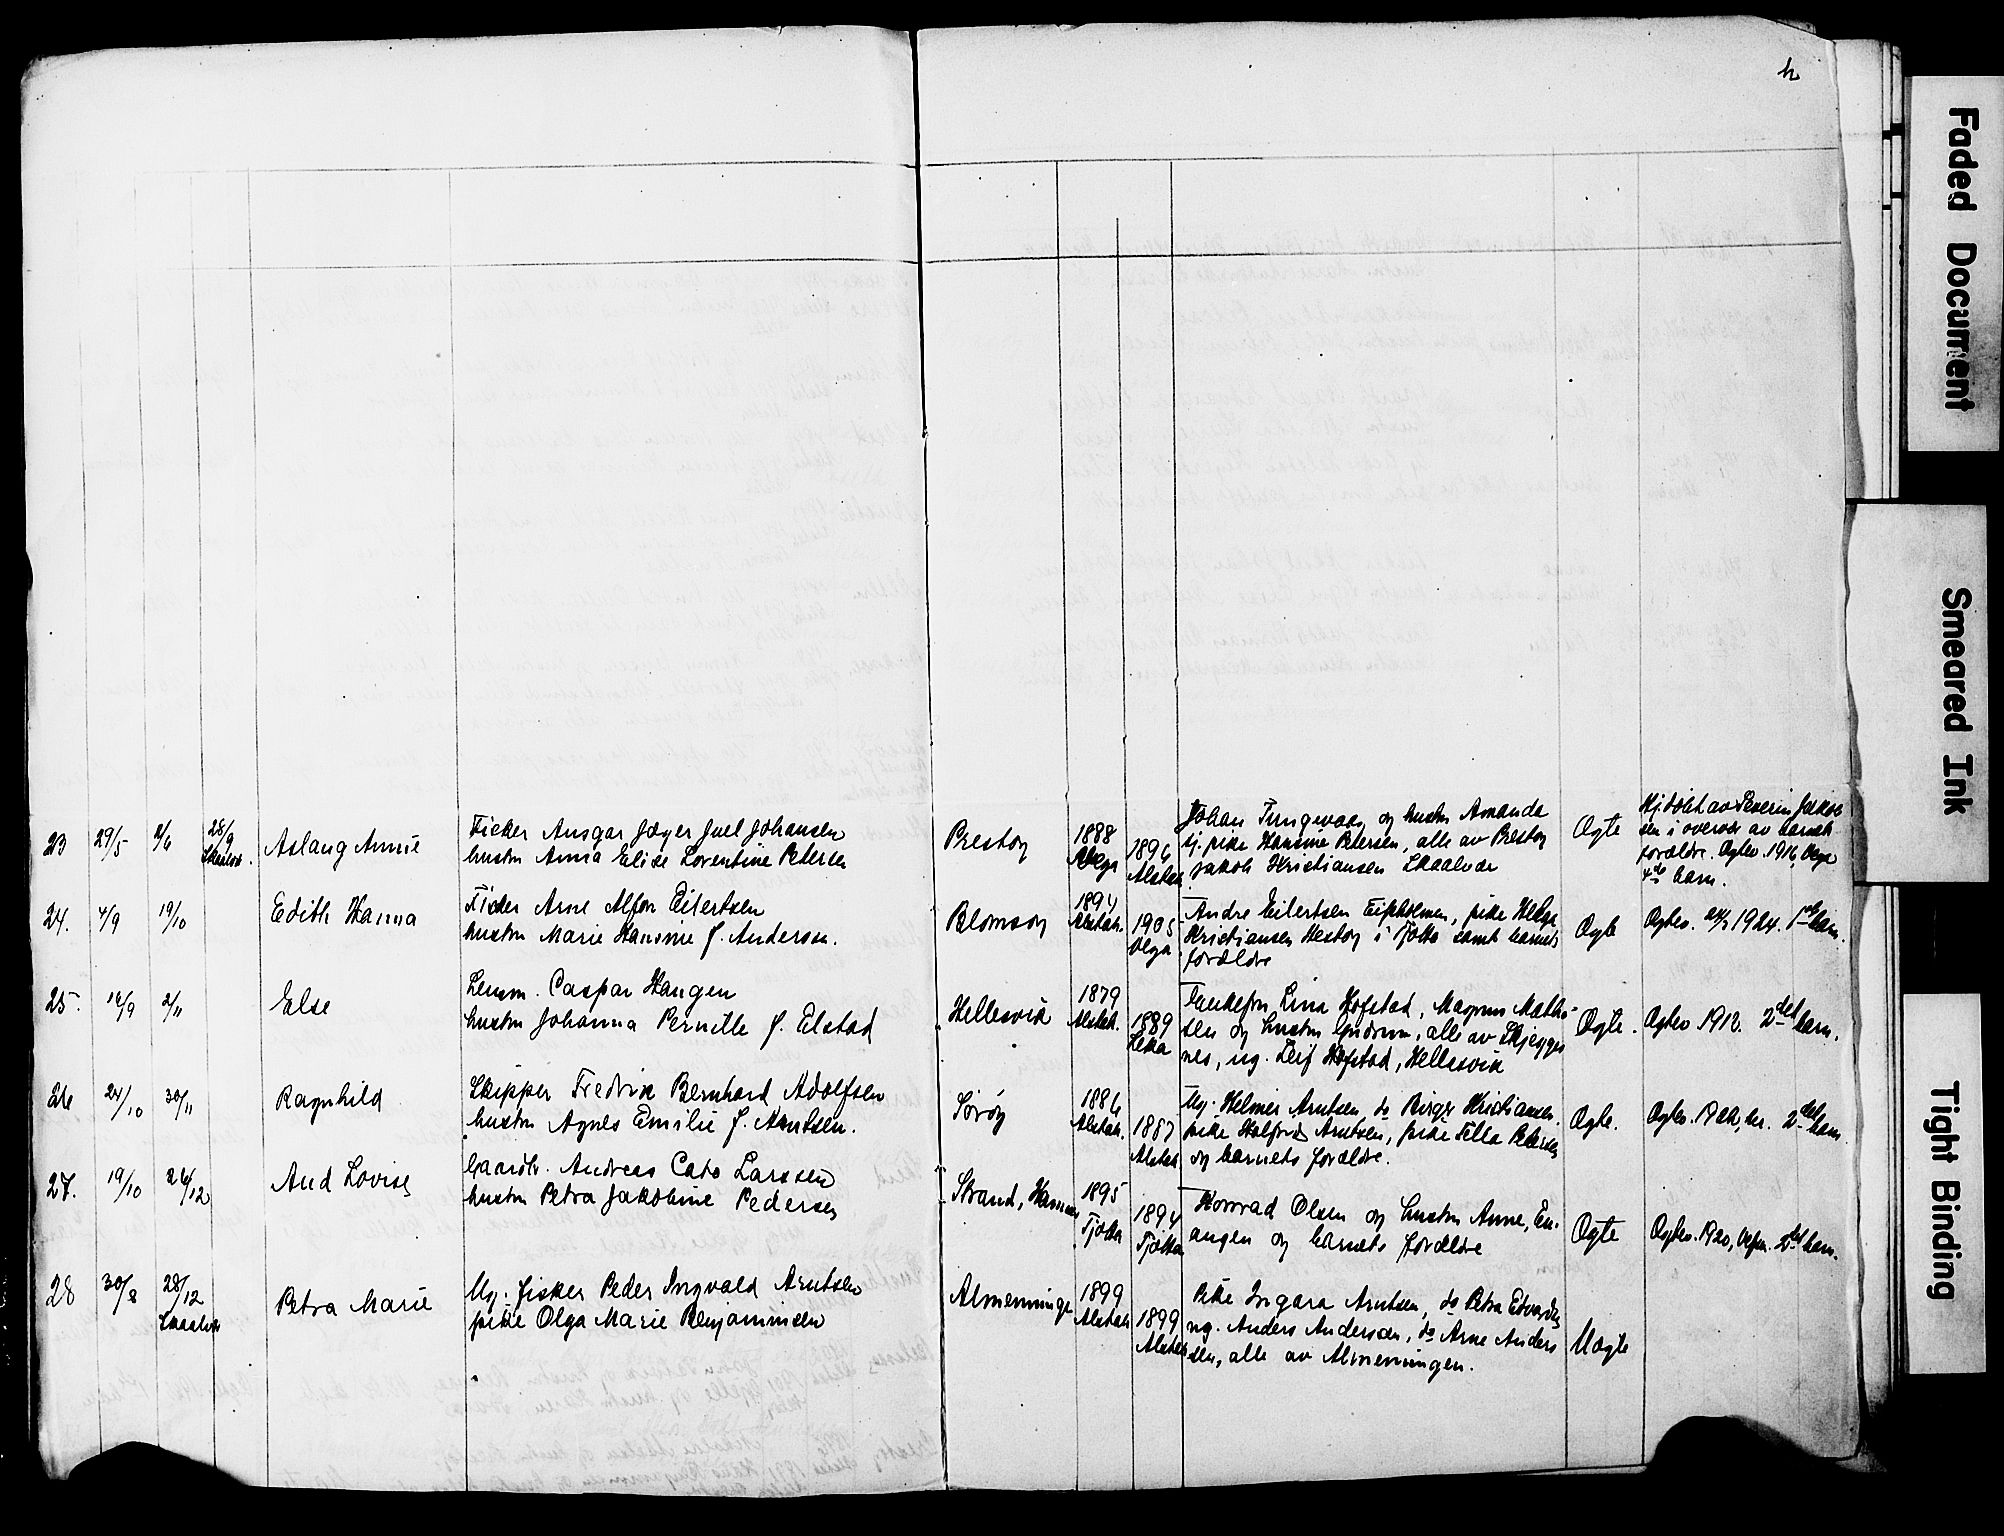 23 29/5 2/6 28/9 Aslaug Annie
Fisker Ansgar Jæger Juel Johansen
hustru Anna Elise Lorentine Petersen
Prestøy
1888
1894
Alstah.
Johan Tungevaag og hustru Amanda
pike Hansine Petersen, alle av Prestøy
Jakob Kristiansen Skaalvær
Ægte
Hj.døbt av Severin Jakob-
sen i overvær av barnets
forældre. Ægtev. 1916, Vega
4de barn.
24. 4/9 19/10 Edith Hanna
Fisker Arne Alfon Eilertsen
hustru Marie Hansine f. Anderssen.
Blomsøy
1894
Alstah.
1905
Vega
Andre Eilertsen, pike Helga
Kristiansen Hestøy i Tjøtta samt barnets
forældre
Ægte
Ægtev. 1924. 1ste barn.
25. 14/9 2/11 Else
Lensm. Caspar Haugen
hustru Johanna Pernille f. Elstad
Hellesvik
1879
Alstah.
1889
Leka
Enkefru Lina Hofstad, Magnus Mathi-
sen og hustru Gudrun, alle av Skjegges
nes, ug. Leif Hofstad, Hellesvik
Ægte.
Ægtev. 1912. 2det barn.
26 24/10 30/11 Ragnhild
Skipper Fredrik Bernhard Adolfsen
hustru Agnes Emilie f. Arntsen.
Sørøy
1884
Alstah.
1887
Alstah.
Ug. Helmer Arntsen, do Birger Kristiansen,
pike Halfrid Arntsen, pike Petersen
og barnets forældre.
Ægte.
Ægtev. 2det barn.
27. 19/10 26/12 Aud Lovise
Gaardbr. Andreas Cato Larssen
hustru Petra Jakobine Pedersen
Strand, Hamnøy
1895
Tjøtta
1894
Tjøtta
Konrad Olsen og hustru Anne, En-
angen og barnets forældre
Ægte
Ægtev. 1920, 2det barn.
28 30/8 28/12 Petra Marie
Skaalvær
Ug. fisker Peder Ingvald Arntsen
pike Olga Marie Benjaminsen
Almenningen
1899
Alstah.
1899
Alstah
Pike Ingara Arntsen, do Petra Edvardsen
ug. Anders Anderssen, do Arne Anders
sen, alle av Almenningen.
Uægte
Faded Document
Smeared Ink
Tight Binding